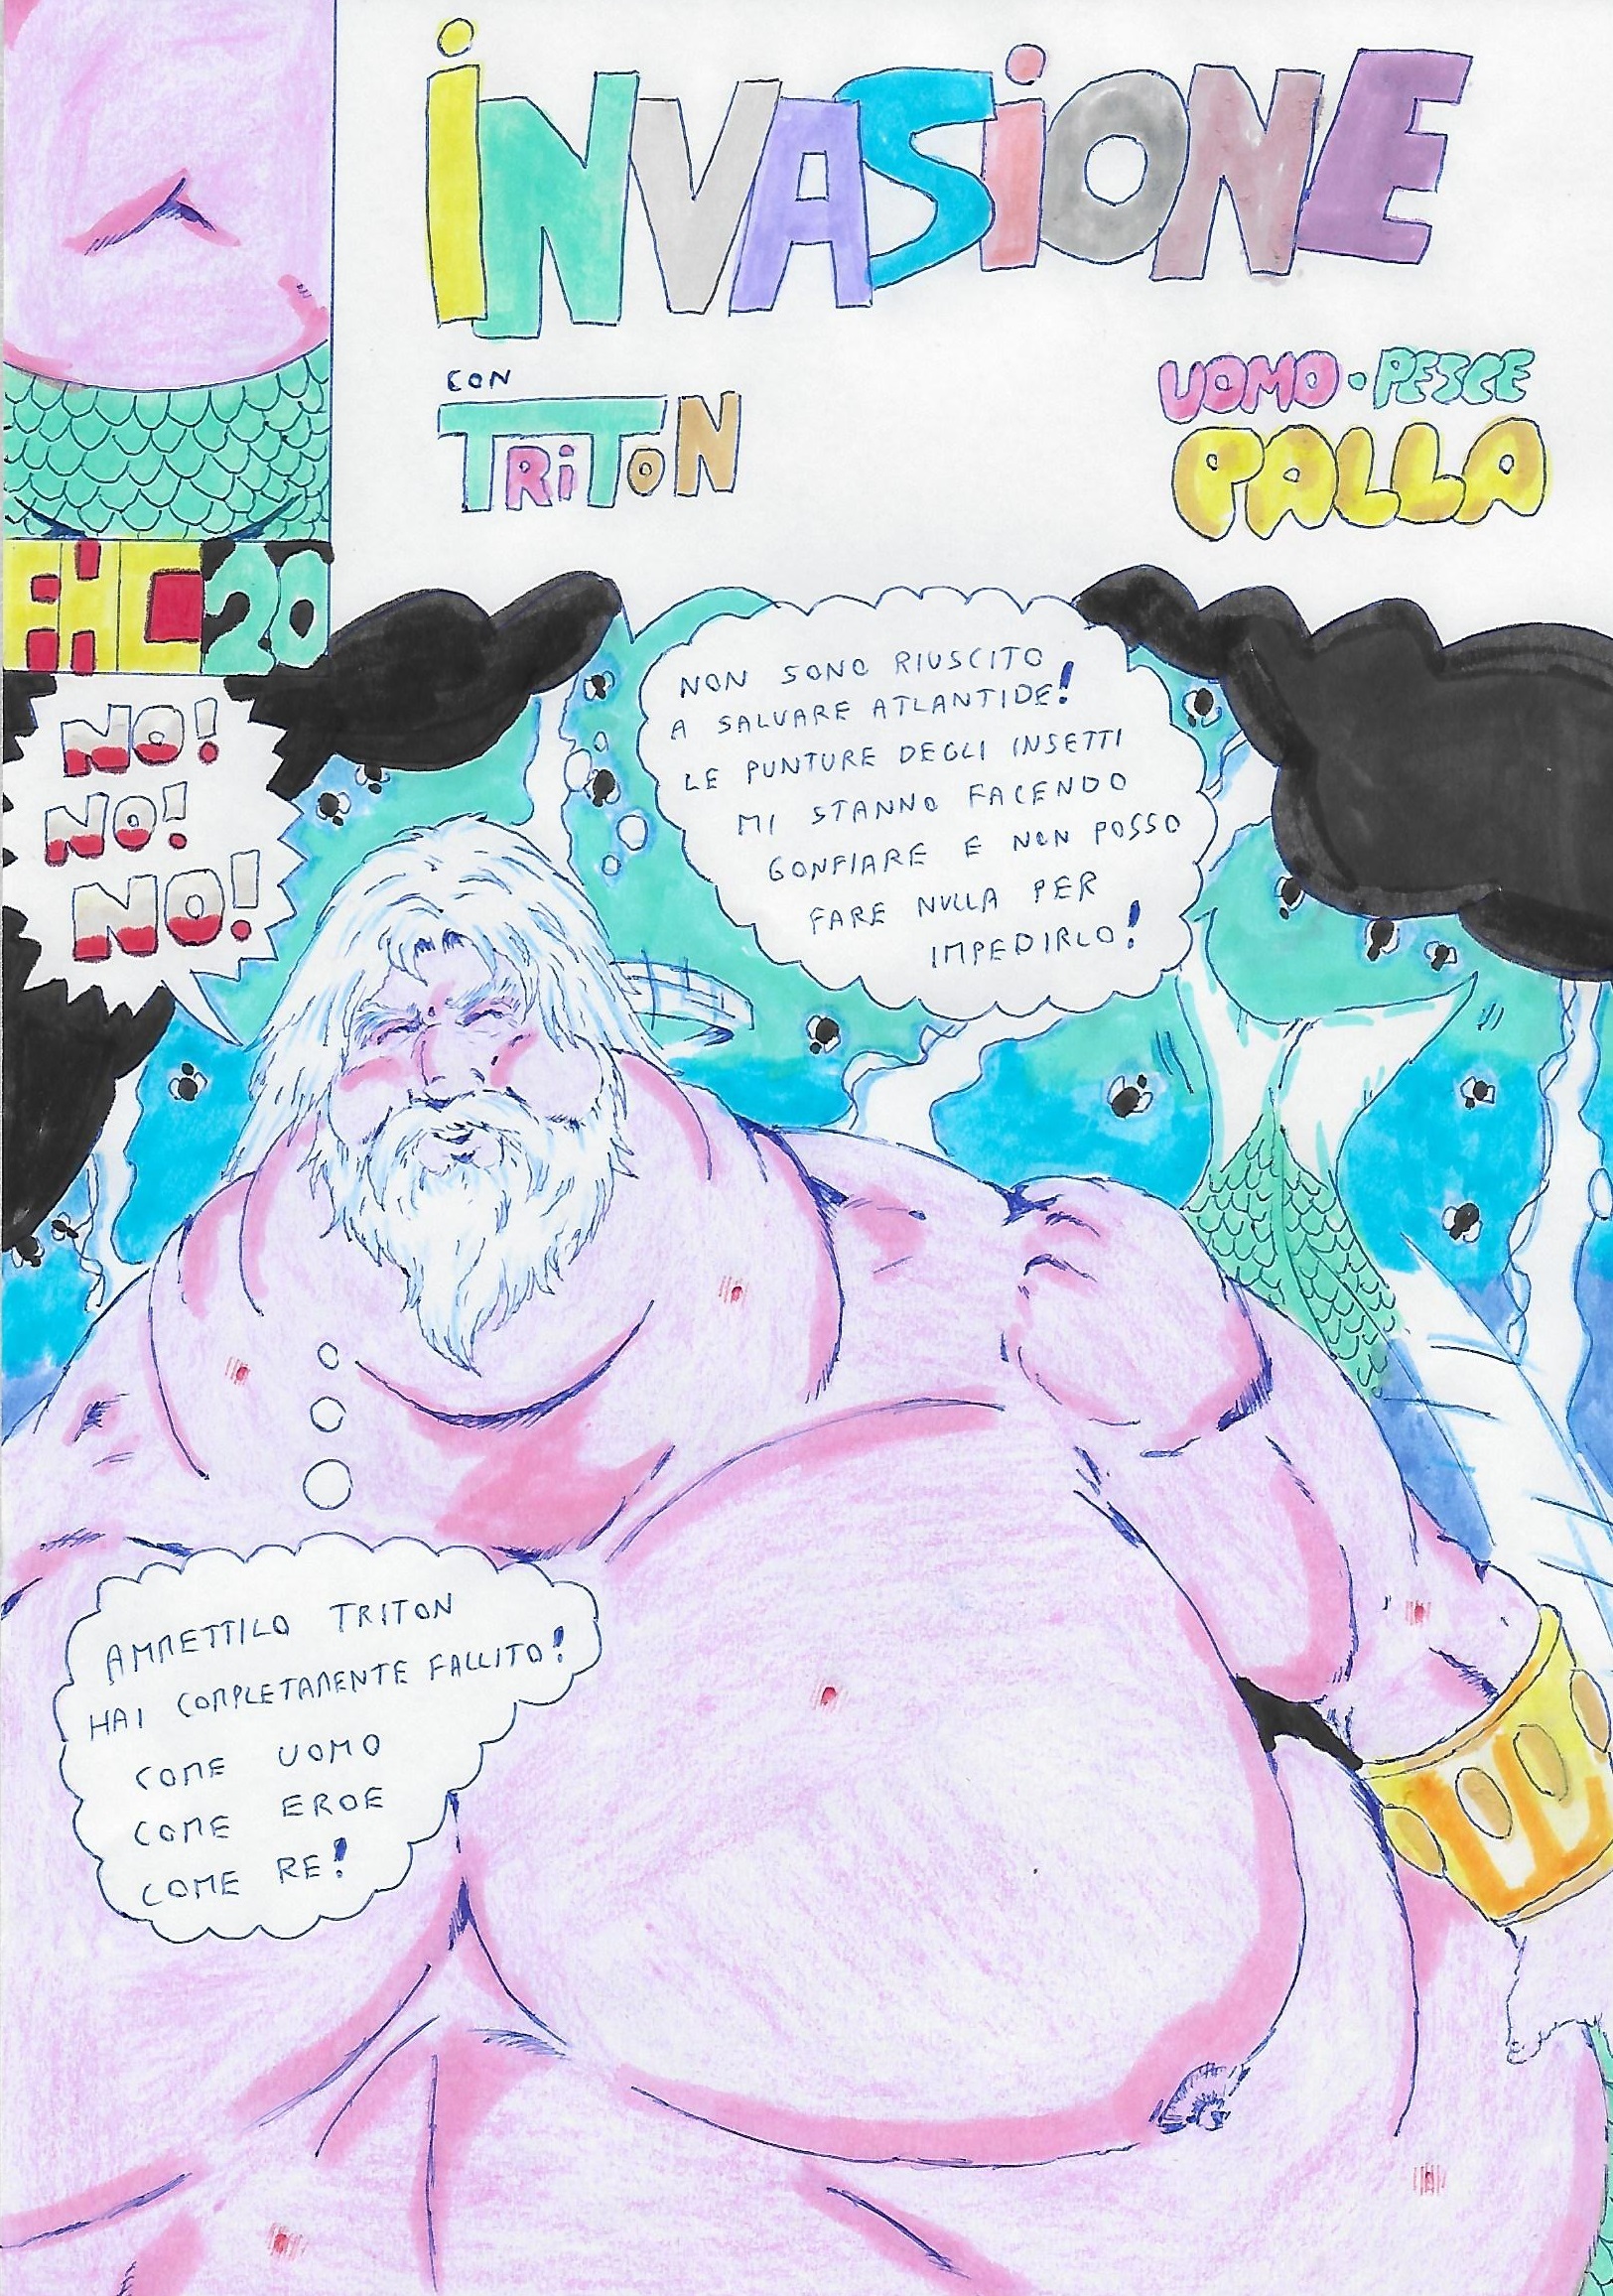 iNVASiONE
CON
TRiToN
UOMO·PESCE
PALLA
FHC20
NO!
NO!
NO!
NON SONO RIUSCITO
A SALVARE ATLANTIDE!
LE PUNTURE DEGLI INSETTI
MI STANNO FACENDO
GONFIARE E NON POSSO
FARE NULLA PER
IMPEDIRLO!
AMMETTILO TRITON
HAI COMPLETAMENTE FALLITO!
COME UOMO
COME EROE
COME RE!